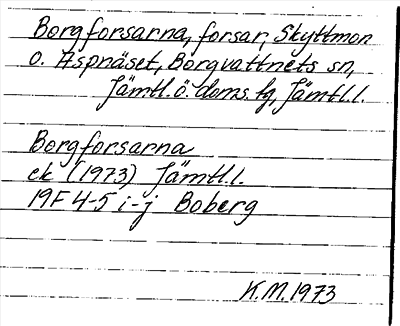 Borgforsarna, forsar, Skyttmon
o. Aspnäset, Borgvattnets sn,
Jämtl. ö. doms. hg, Jämtl. l.
Borgforsarna
ek (1973) Jämtl. l.
19F 4-5 i-j Boberg
K.M. 1973